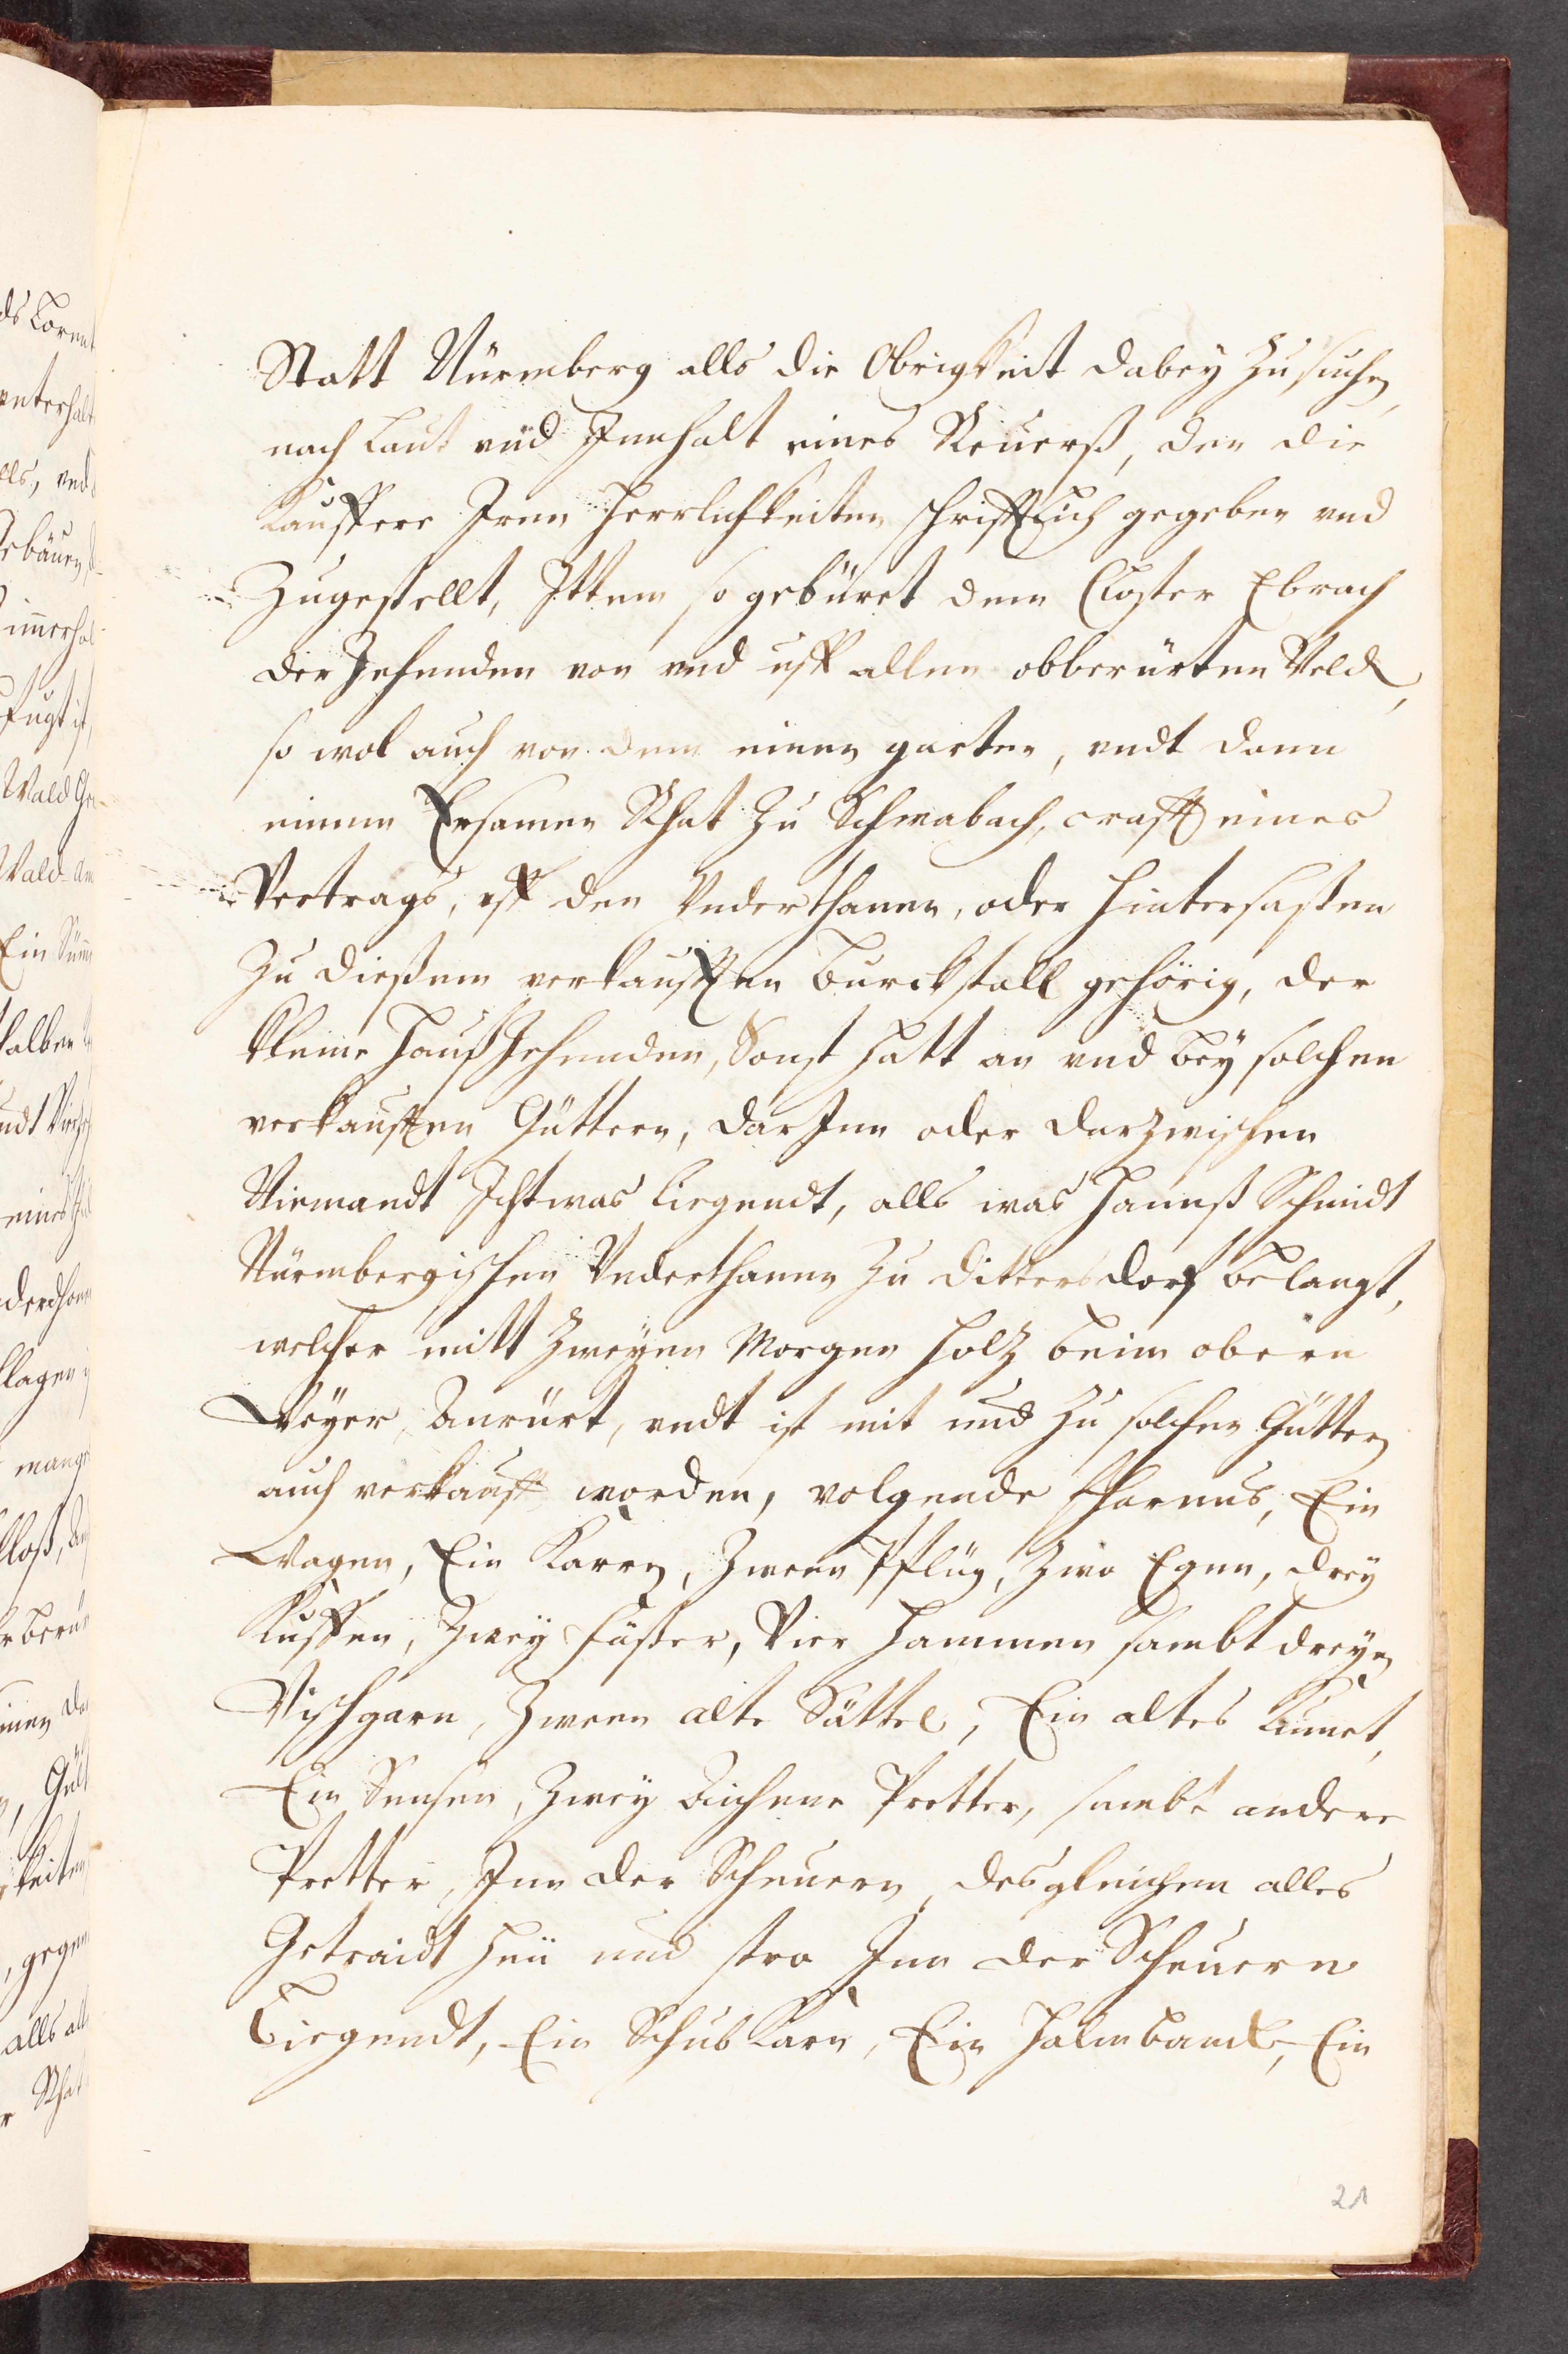 Statt Nürmberg alls die Obrigkeit dabey zusuchen,
nach Laut und Innhalt eines Reuerß, den die
Kauffere Iren Herrlichkeiten schrifftlich gegeben vnd
Zugestellt, Ittem so gebüret dem Closter Ebrach
der Zehenden von vnd uff allen obberürten Veld,
so wol auch von dem einen garten, vndt dann
einem Ersamen Rhat zu Schwabach, crafft eines
Vertrags, uff den Vnderthanen, oder hintersaßen
Zu dießem verkaufften Burckstall gehörig, der
kleine HaußZehenden, Sonst hatt an vnd bey solchen
verkaufften Güttern, darInn oder darzwischen
Niemandt Ichtwas liegendt, alls was Hannß Schmidt
Nürmbergischen Vnderthanen zu Dittersdorf belangt,
welcher mitt Zweyen Morgen Holz beim obern
Weyer, Anrürt, vndt ist mit und zu solchen Güttern
auch verkaufft worden, volgende fharnus, Ein
Wagen, Ein Karrn, Zween Pflüg, Zwo Egen, drey
Kuffen, Zwey fäßer, Vier Hammen sambt dreyen
Vischgarn, Zween alte Sättel, Ein altes Kumet,
Ein Sensen, Zwey Aichene Pretter, sambt andere
Pretter, Inn der Scheuern, desgleichen alles
Getraidt Heü und stro Inn der Scheuern
Liegendt, Ein Schubkarn, Ein Halmbanck, Ein
21